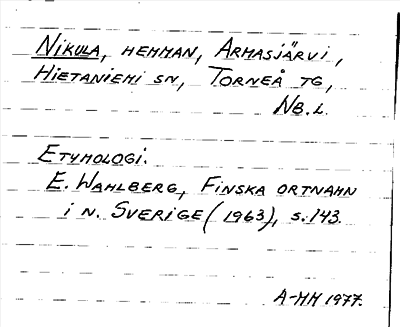 Nikula, hemman, Armasjärvi,
Hietaniemi sn, Torneå tg,
Nb.l.
Etymologi.
E. Wahlberg, Finska ortnamn
i n. Sverige (1963), s. 143
A-MM 1977.